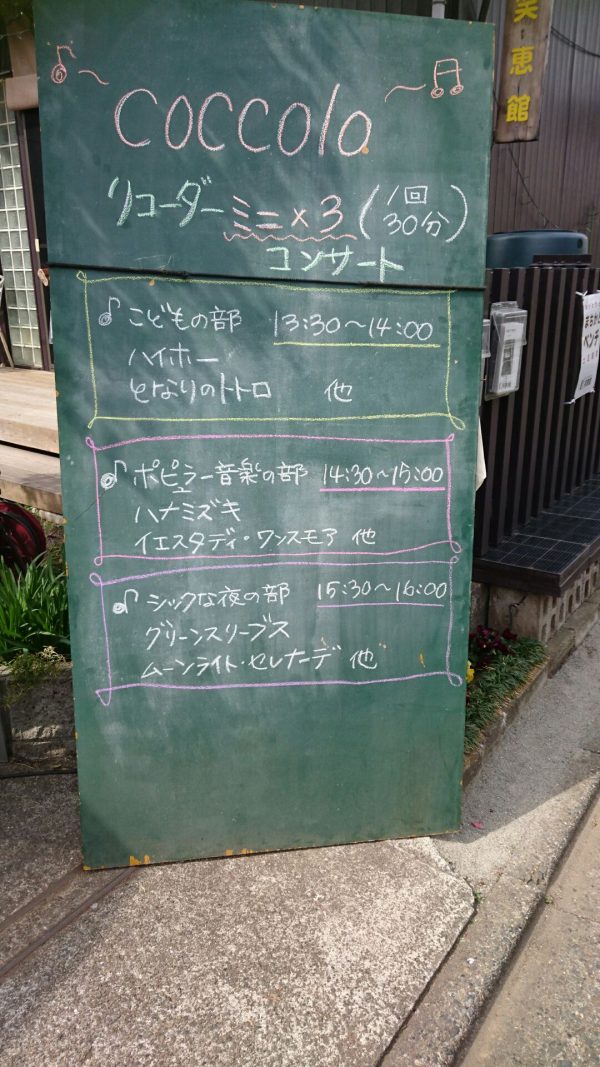 笑恵館
coccolo
リコーダー ミニ×3 (1回 30分)
コンサート
♪こどもの部 13:30〜14:00
ハイホー
となりのトトロ 他
♪ポピュラー音楽の部 14:30〜15:00
ハナミズキ
イエスタデイ・ワンスモア 他
♪シックな夜の部 15:30〜16:00
グリーンスリーブス
ムーンライト・セレナーデ 他